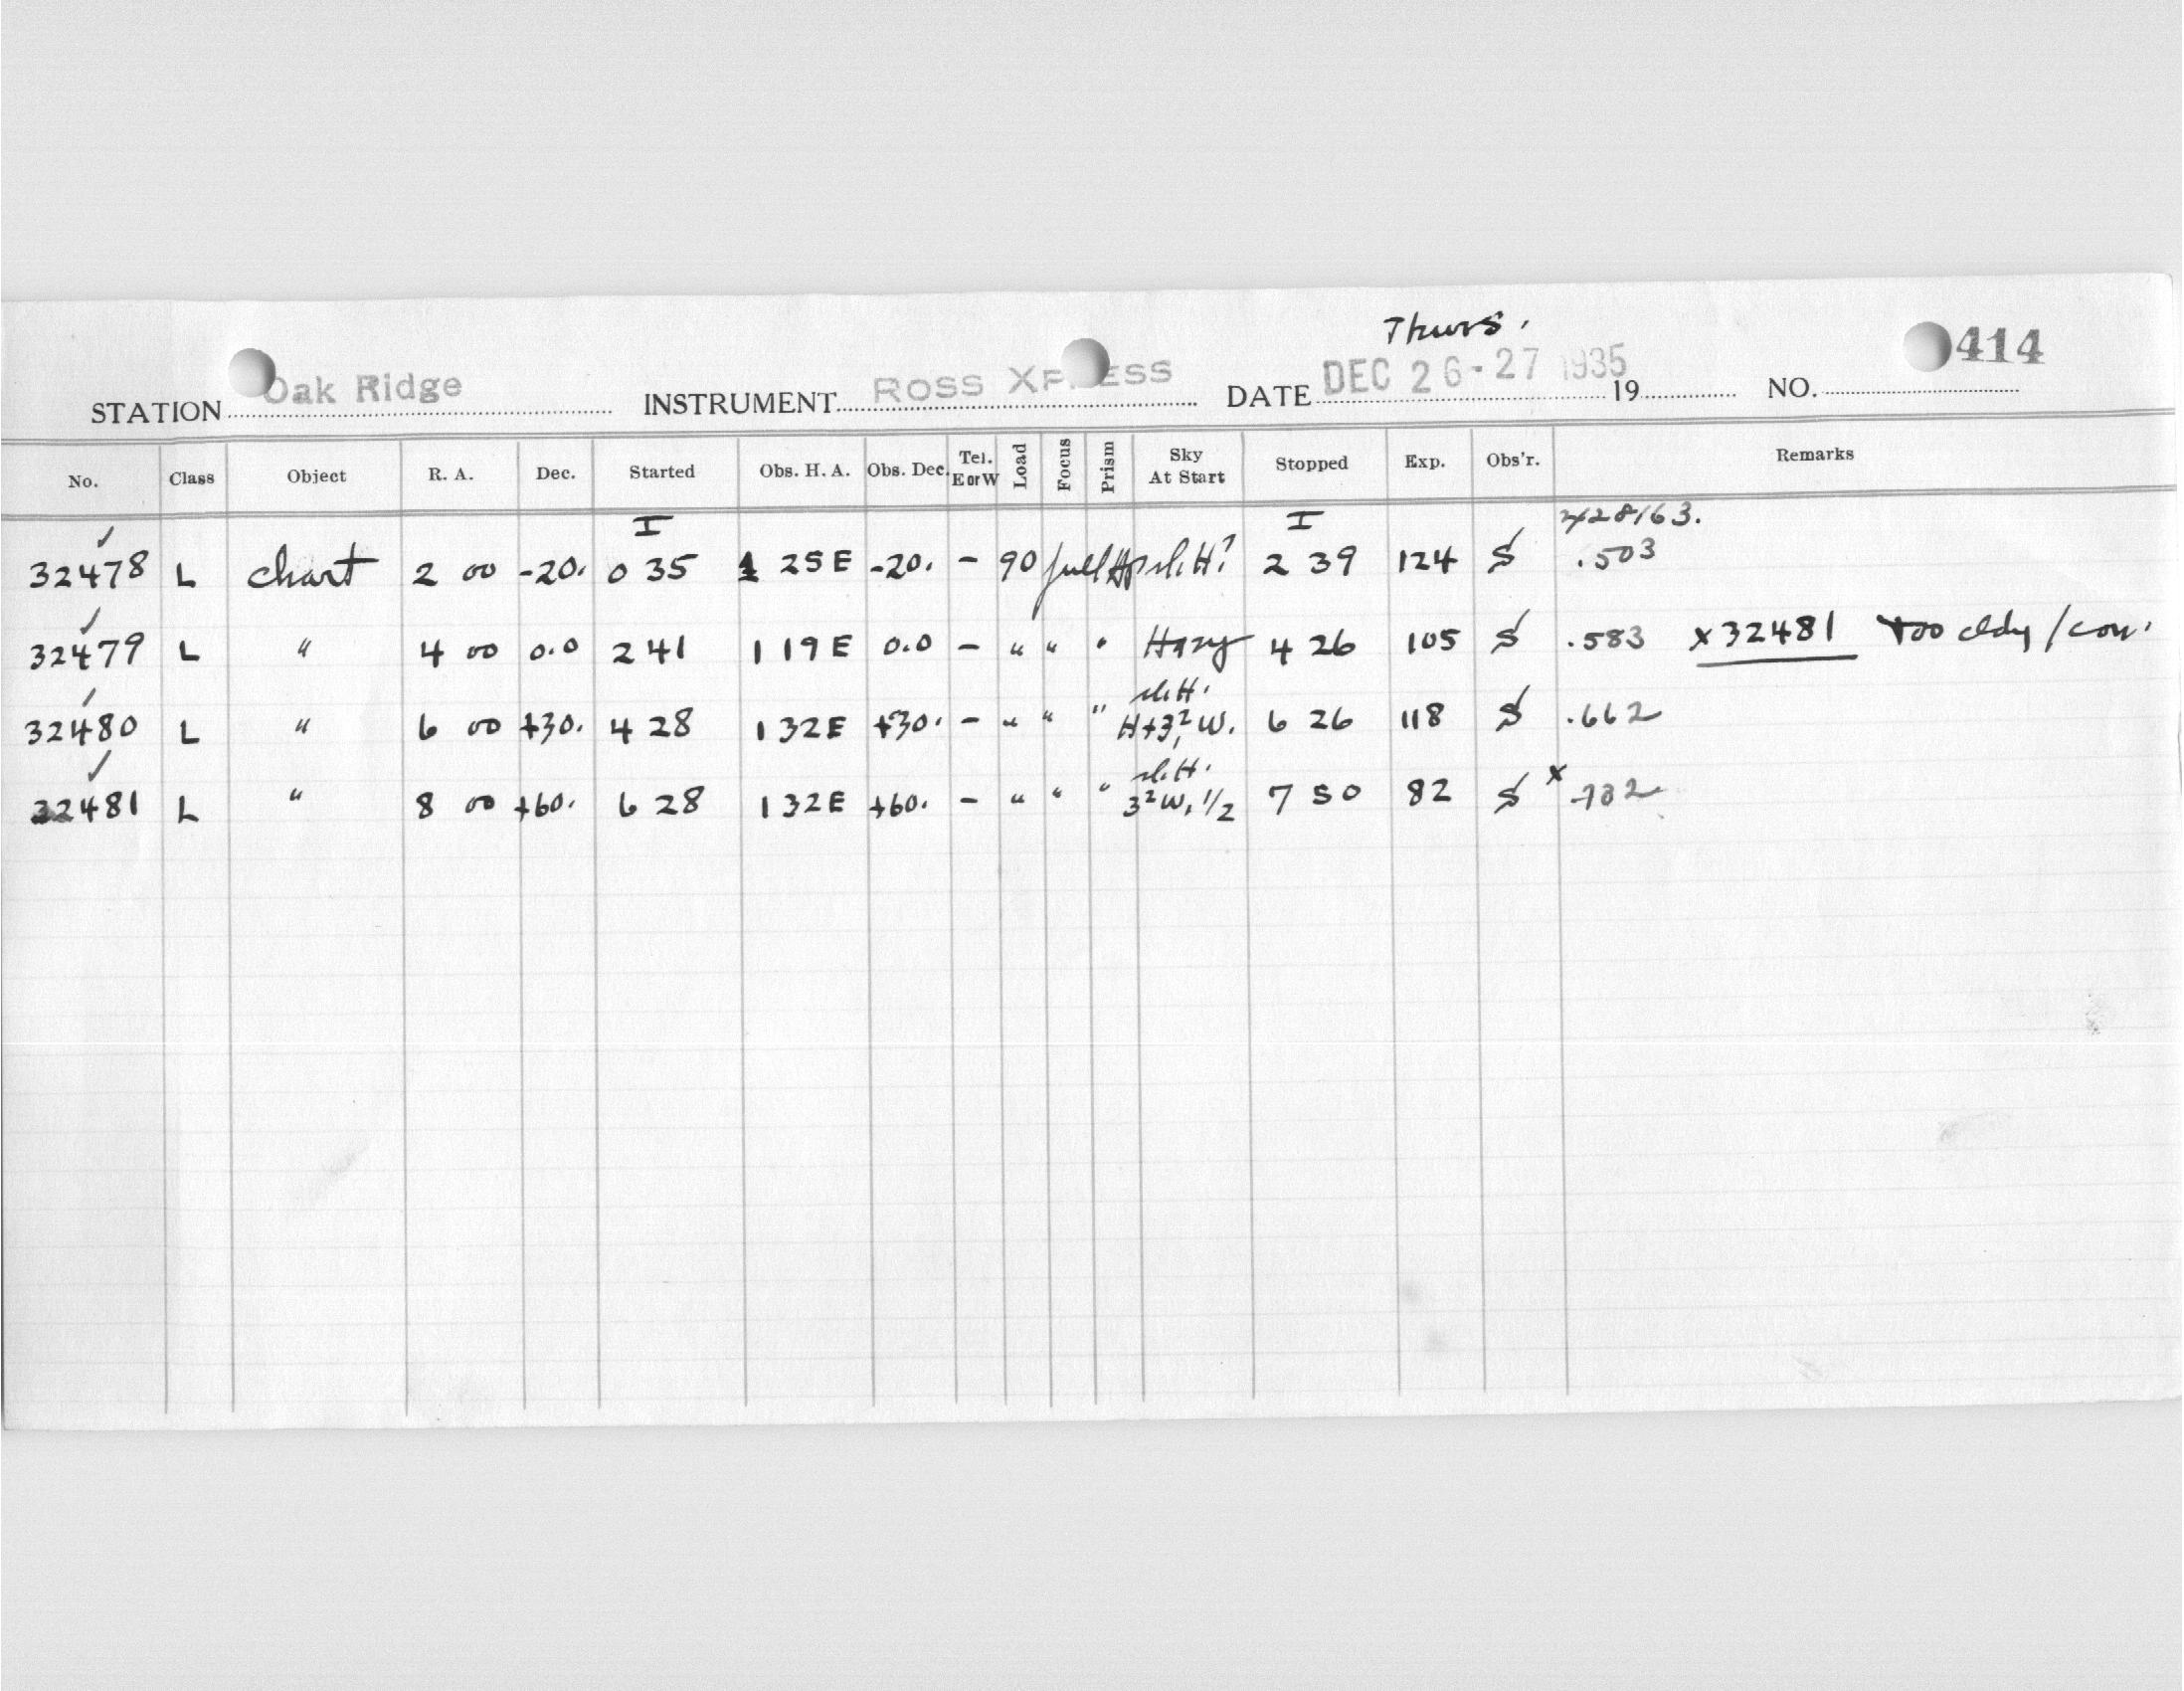 Thurs.
STATION Oak Ridge INSTRUMENT ROSS XP ESS DATE DEC 26-27 1935 19 NO. 414
No. Class Object R. A. Dec. Started Obs. H. A. Obs. Dec. Tel. E or W Load Focus Prism Sky At Start Stopped Exp. Obs'r. Remarks
I I 2428163.
✓
32478 L chart 2 00 -20. 035 1 25E -20. - 90 full sl. H? 2 39 124 S .503
✓
32479 L " 4 00 0.0 241 1 19E 0.0 - " " " Hazy 4 26 105 S .583 x32481 too cldy /
✓ sl. H.
32480 L " 6 00 +30. 4 28 1 32E +30. - " " " H+3² W. 6 26 118 S .662
✓ sl. H.
32481 L " 8 00 +60. 6 28 1 32E +60. - " " " 3²W, 1/2 7 50 82 S x .732